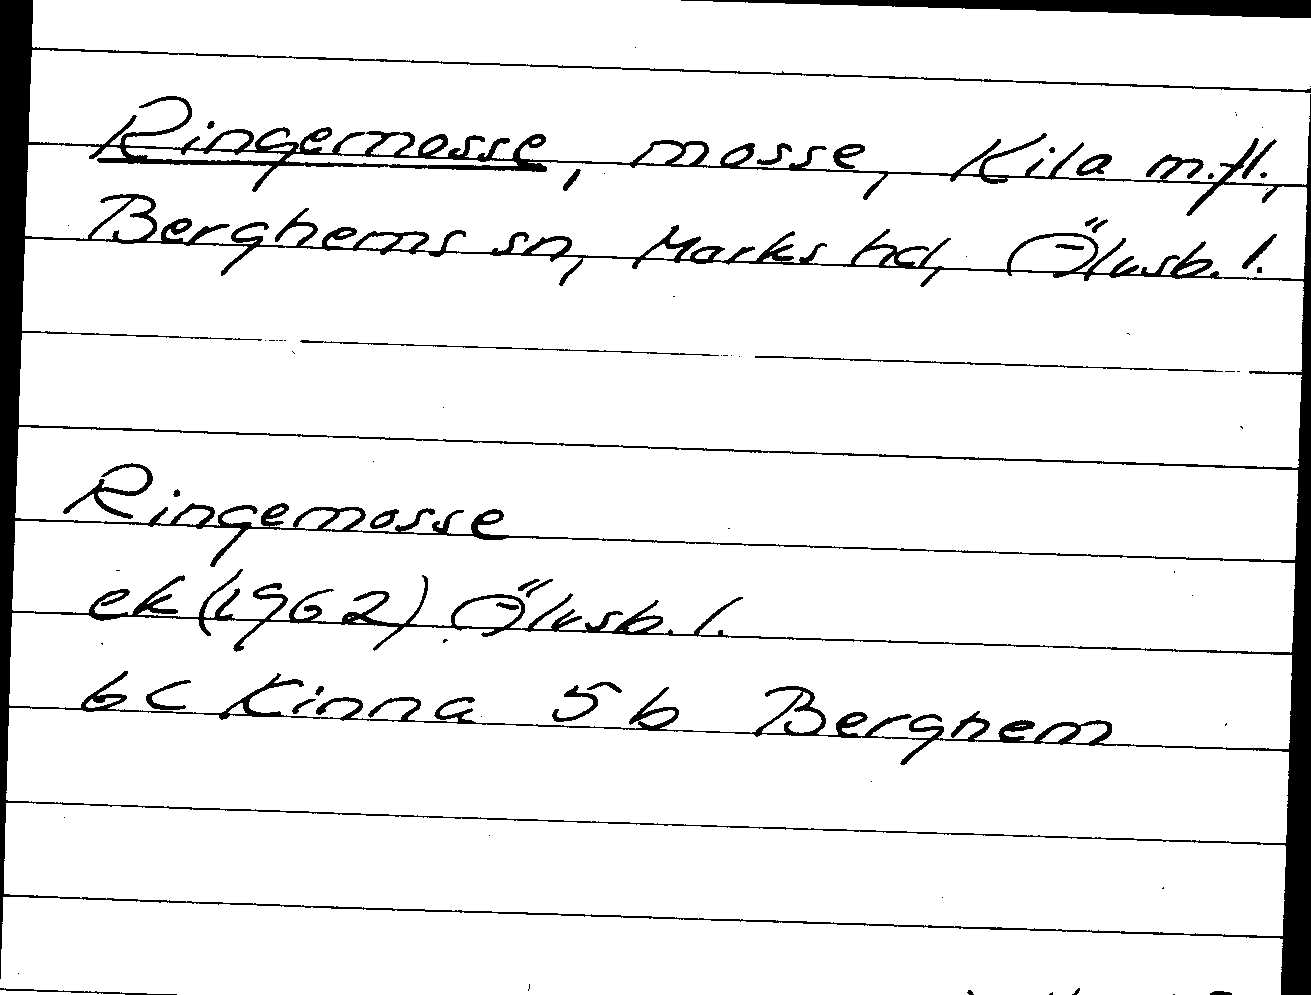 Ringemosse, mosse, Kila m.fl.,
Berghems sn, Marks hd, Älvsb. l.
Ringemosse
ek (1962) Älvsb. l.
6C Kinna 5b Berghem